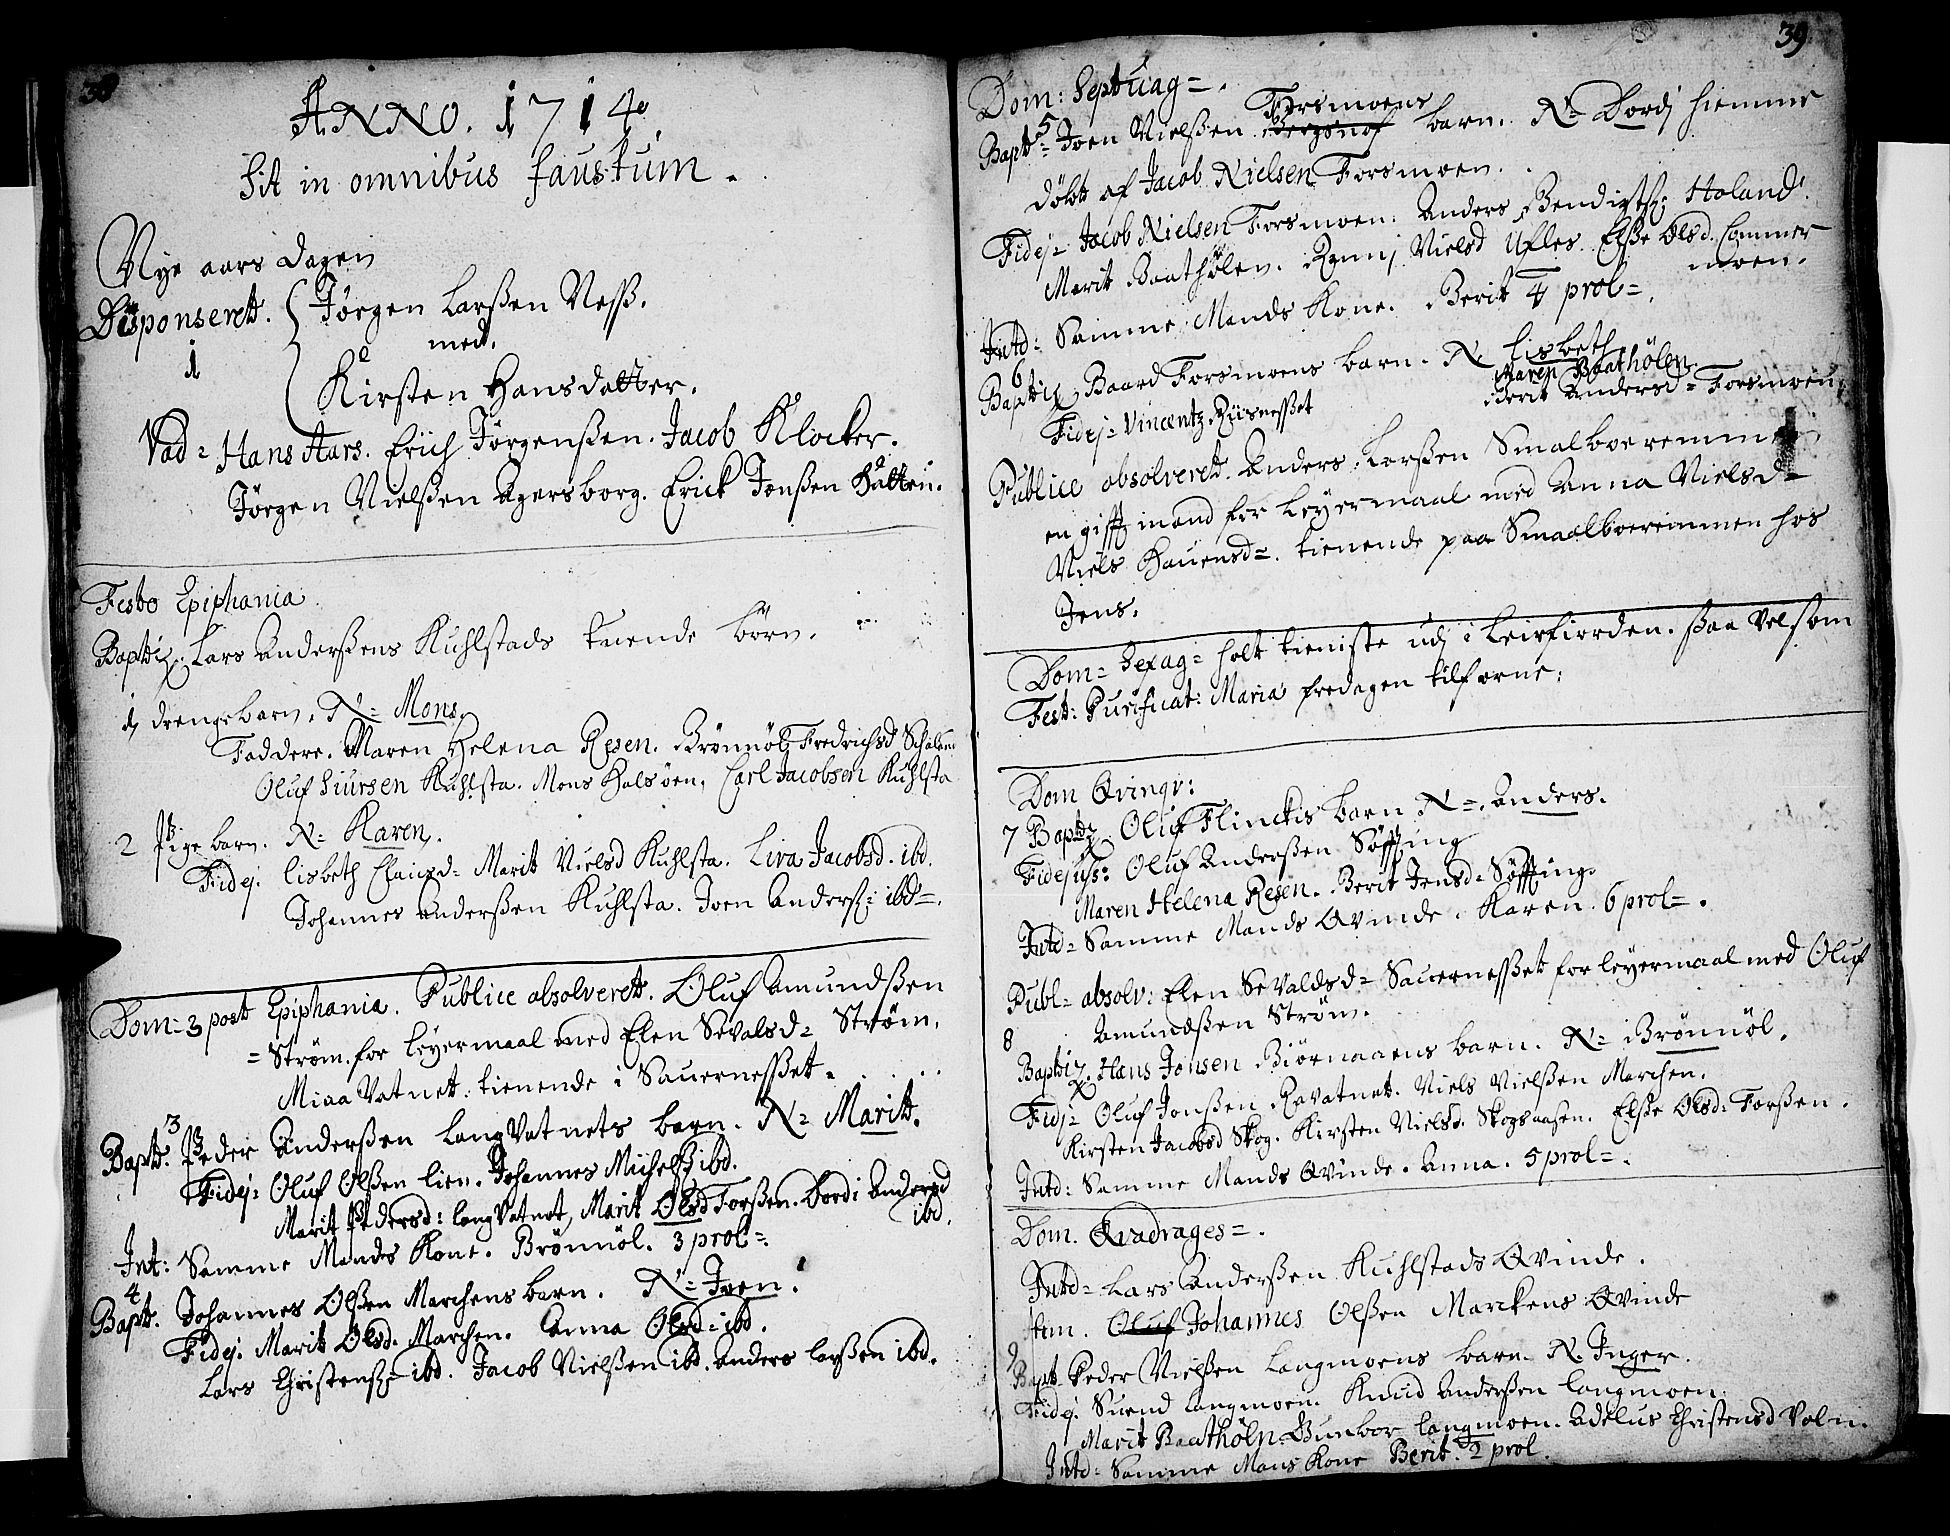 38
ANNO. 1714
Sit in omnibus faustum.
Nye aars Dagen
Disponseret. Jørgen Larßen Neß.
1 med.
Kirsten Hansdatter.
Vad= Hans Aars. Erich Jørgensßen. Jacob Klocker.
Jørgen Nielßen Agersborg. Erick Jonßen Hatten.
Festo Epiphania
Baptiz. Lars Anderßens Kuhlstads tuende børn.
1 drengebarn. N= Mons.
Faddere. Maren Helena Resen. Brønnöl Fredrichsd
Oluf Siursen Kuhlsta. Mons Halsøen, Carl Jacobsen Kuhlsta
2 Pigebarn. N= Karen.
Fidej. Lisbeth Marit Nielsd Kuhlsta. Liva Jacobsd. ibd.
Johannes Anderßen Kuhlsta. Joen Anderß: ibd=.
Dom=3 post Epiphania. Publice absolveret. Oluf Amundßen
= Strøm. for Leyermaal med Elen Sevalsd= Strøm.
Miaa Vatnet. tienende i Sauernesßet.
3
Bapt. Peder Anderßen LangVatnets barn. N= Maritt.
Fidej= Oluf Olßen Lien. Johannes Michelß ibd.
Marit Pedersd: LangVatnet, Marit Olsd Forßen. Dordi Andersd
ibd.
Int: Samme Mands Kone. Brønnöl. 3 prol=.
4
Bapt. Johannes Olßen Marchens barn. N= Joen.
Fidej. Marit Olsd. Marchen. Anna Olsd= ibd.
Lars Christenß= ibd. Jacob Nielßen ibd. Anders Larßen ibd.
39
Dom: Septuag=.
5 Forsmoens
Bapt= Joen Nielßen barn. N= Dordj hiemme
døbt af Jacob Nielsen Forsmoen.
Fidej= Jacob Nielsen Forsmoen. Anders Bendigtß: Holand.
Marit Baathølen. Nielsd Ufles. Elße Olsd. Sommer
moen.
Intd: Samme Mands Kone. Berit 4 prol=.
6
Baptiz Baard Forsmoens barn. N. Lisbeth
Maren Baathölen
Fidej= Vincentz Riisnesßet Berit Andersd= Forsmoen
Publice absolveret. Anders Larßen Smalboeremmen
en gifft mand for Leyermaal med Anna Nielsd=
Niels Hauensd=. tienende paa Smaalboeremmen hos
Jens.
Dom= Sexag= holt tieniste udj i Leirfiorden. Saa Vel som
Fest: Purificat: Maria fredagen tilforne:
Dom Qvinqv:
7 Baptz. Oluf Flinckis barn N=. Anders.
Fidejuss: Oluf Anderßen Søfting
Maren Helena Resen. Berit Jensd= Søfting.
Intd= Samme Mands Qvinde. Karen. 6 prol=.
Publ= absolv: Elen Sevaldsd= Sauernesßet for leyermaal med Oluf
8 Amundßen Strøm.
Baptiz. Hans Jonsen Biørnaaens barn. N= Brønnöl.
Fidj= Oluf Jonßen Ravatnet. Niels Nielßen Marchen.
Kirsten Jacobsd Skog. Kirsten Nielsd. Skogsaasen. Elße Olsd= Forßen.
Intd: Samme Mands Qvinde. Anna. 5 prol=.
Dom. Qvadrages=.
Intd= Lars Anderßen Kuhlstads Qvinde.
Item. Oluf Johannes Olßen Marckens Qvinde
9
Bapt. Peder Nielßen Langmoens barn N. Inger.
Fidej. Suend Langmoen. Knud Anderßen Langmoen.
Marit Baathöln. Gunbor Langmoen. Adelus Christensd Voln.
Intd= Samme Mans Kone Berit. 2 prol.